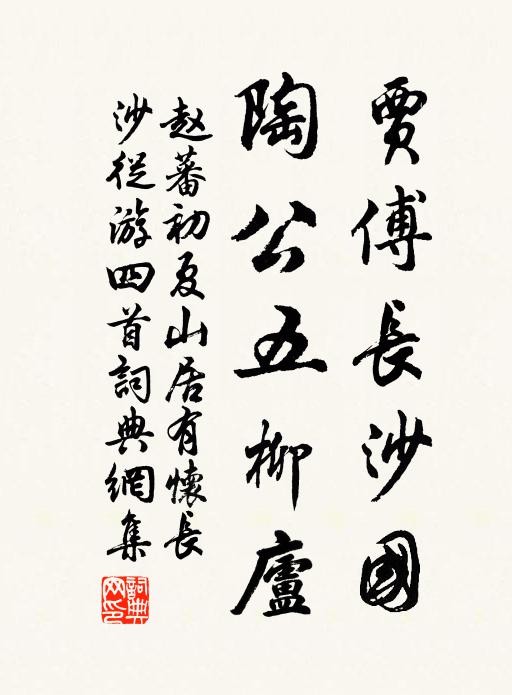 賈傅長沙國
陶公五柳廬
赵蕃初夏山居有懷長
沙從游四首詞典網集
詞典網印